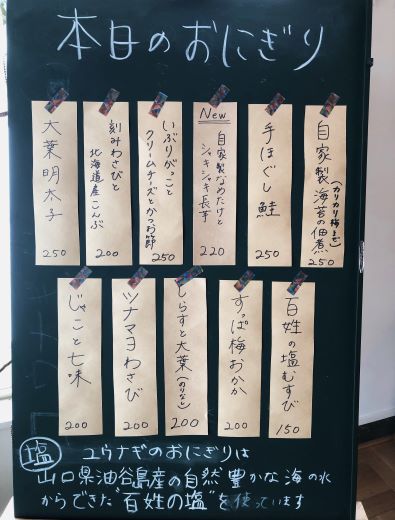 本日のおにぎり
自家製海苔の佃煮
(カリカリ梅まぜ)
250
手ほぐし鮭
250
New
自家製なめたけと
シャキシャキ長芋
220
いぶりがっこと
クリームチーズとかつお節
250
刻みわさびと
北海道産こんぶ
200
大葉明太子
250
百姓の塩むすび
150
すっぱ梅おかか
200
しらすと大葉(のりなし)
200
ツナマヨわさび
200
じゃこと七味
200
塩 ユウナギのおにぎりは
山口県油谷島産の自然豊かな海の水
からできた"百姓の塩"を使っています